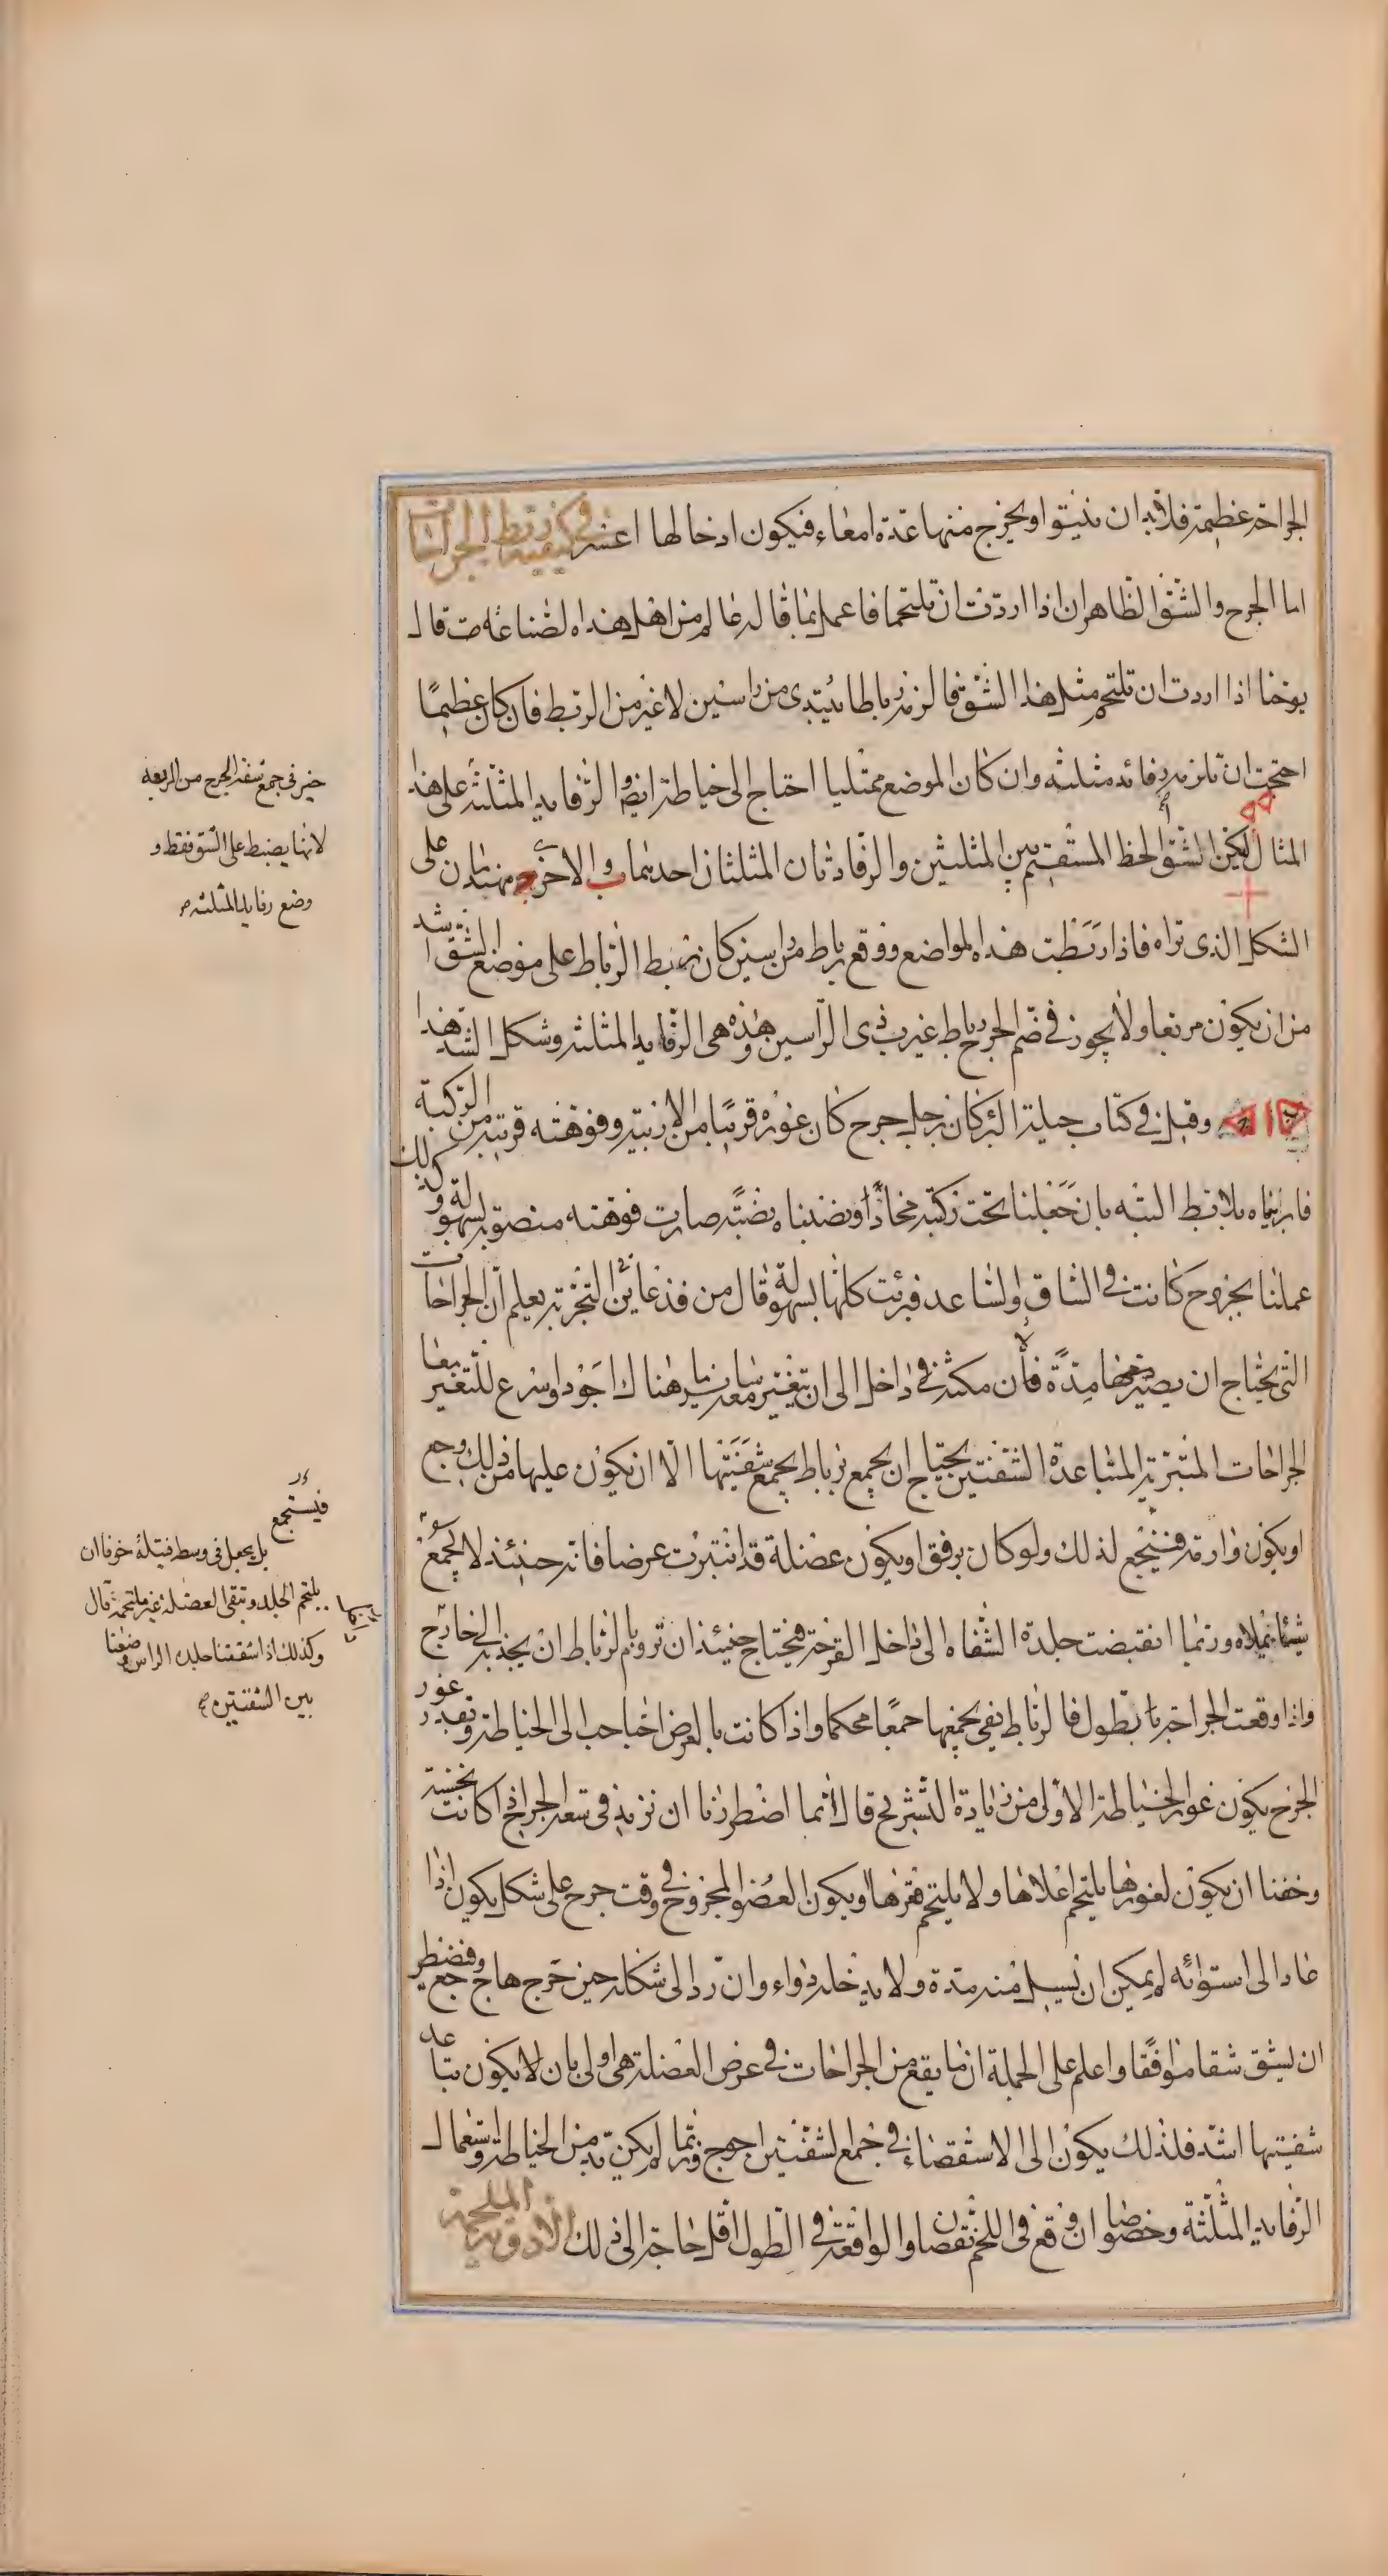 الجراحة عظيمة فلا بد ان ينتوا ويخرج منها عدة امعاء فيكون ادخالها اعسر في كيفية ربط الجراحات
اما الجرح والشق الظاهران اذا اردت ان تلتحما فاعمل بما قاله عالم من اهل هذه الصناعة قال
يوحنا اذا اردت ان تلتحم مثل هذا الشق فالزمه رباطا يبتدى من راسين لا غير من الربط فان كان عظيما
احتجت ان تلزمه رفائد مثلثه وان كان الموضع ممتليا احتاج الى خياطة ايضا والرفايد المثلثة على هذا
المثال ليكن الشق الخط المستقيم بين المثلثين والرفادتان المثلثتان احديهما ب والاخرى ج مهندمان على
الشكل الذى تراه فاذا ربطت هذه المواضع ووقع رباط من راسين كان ربط الرباط على موضع الشق اشد
من ان يكون مربعا ولا يجوز في ضم الجرح رباط غير ذى الراسين وهذه هى الرفايد المثلثة وشكل الشد هذا
وقيل في كتاب حيلة البرء كان برجل جرح كان غوره قريبا من الاربية وفوهته قريبة من الركبة
فابرئناه بلا بط البته بان جعلنا تحت ركبته مخادا ونصبناه نصبة صارت فوهته منصوبة بسهولة وكذلك
عملنا بجروح كانت في الساق والساعد فبرئت كلها بسهولة وقال من قد عاين التجربة يعلم ان الجراحات
التى يحتاج ان يصير فيها مدة فان مكثه في داخل الى ان يتغير هناك اجود واسرع للتغير
الجراحات المتبرية المتباعدة الشفتين يحتاج ان يجمع برباط يجمع شفتيها الا ان يكون عليها من ذلك وجع
او يكون وارمة فيتجع لذلك ولو كان برفق او يكون عضلة قد انتبرت عرضا فانه حينئذ لا يجمعون
شيئا يملاه وربما انقبضت جلدة الشفاه الى داخل القرحة فيحتاج حينئذ ان تروم بالرباط ان يجذبه الى خارج
واذا وقعت الجراحة بالطول فالرباط يفى بجمعها جمعا محكما واذا كانت بالعرض احتاجت الى الخياطة وبقدر غور
الجرح يكون غور الخياطة الاولى من زيادة التشريح قال انما اضطررنا ان نزيد في سعة الجراح اذا كانت نخسة
وخفنا ان يكون لغورها يلتحم اعلاها ولا يلتحم قعرها او يكون العضو المجروح في وقت جرح على شكل يكون اذا
عاد الى استوائه لم يمكن ان يسيل منه مدة ولا يدخله دواء وان رد الى شكله حين خرج هاج وجع فنضطر
ان يشق شقا موافقا واعلم على الجملة ان ما يقع من الجراحات في عرض العضلة هى اولى بان لا يكون تباعد
شفيتها اشد فلذلك يكون الى الاستقصاء في جمع الشفتين احوج وربما لم يكن بد من الخياطة واستعمال
الرفايد المثلثة وخصوصا ان وقع في اللحم نقصان والواقعة في الطول اقل حاجة الى ذلك الادوية الملحمة
خير في جمع شفه الجرح من المربعه
لانها يضبط على الشق فقط و
وضع رفايد المثلثه
فيستجمع
بل يجعل في وسط فتيلة خوفا ان
يلتحم الجلد وتبقى العضلة غير ملتحمة قال
وكذلك اذا شققنا جلدة الراس وضعنا
بين الشفتين